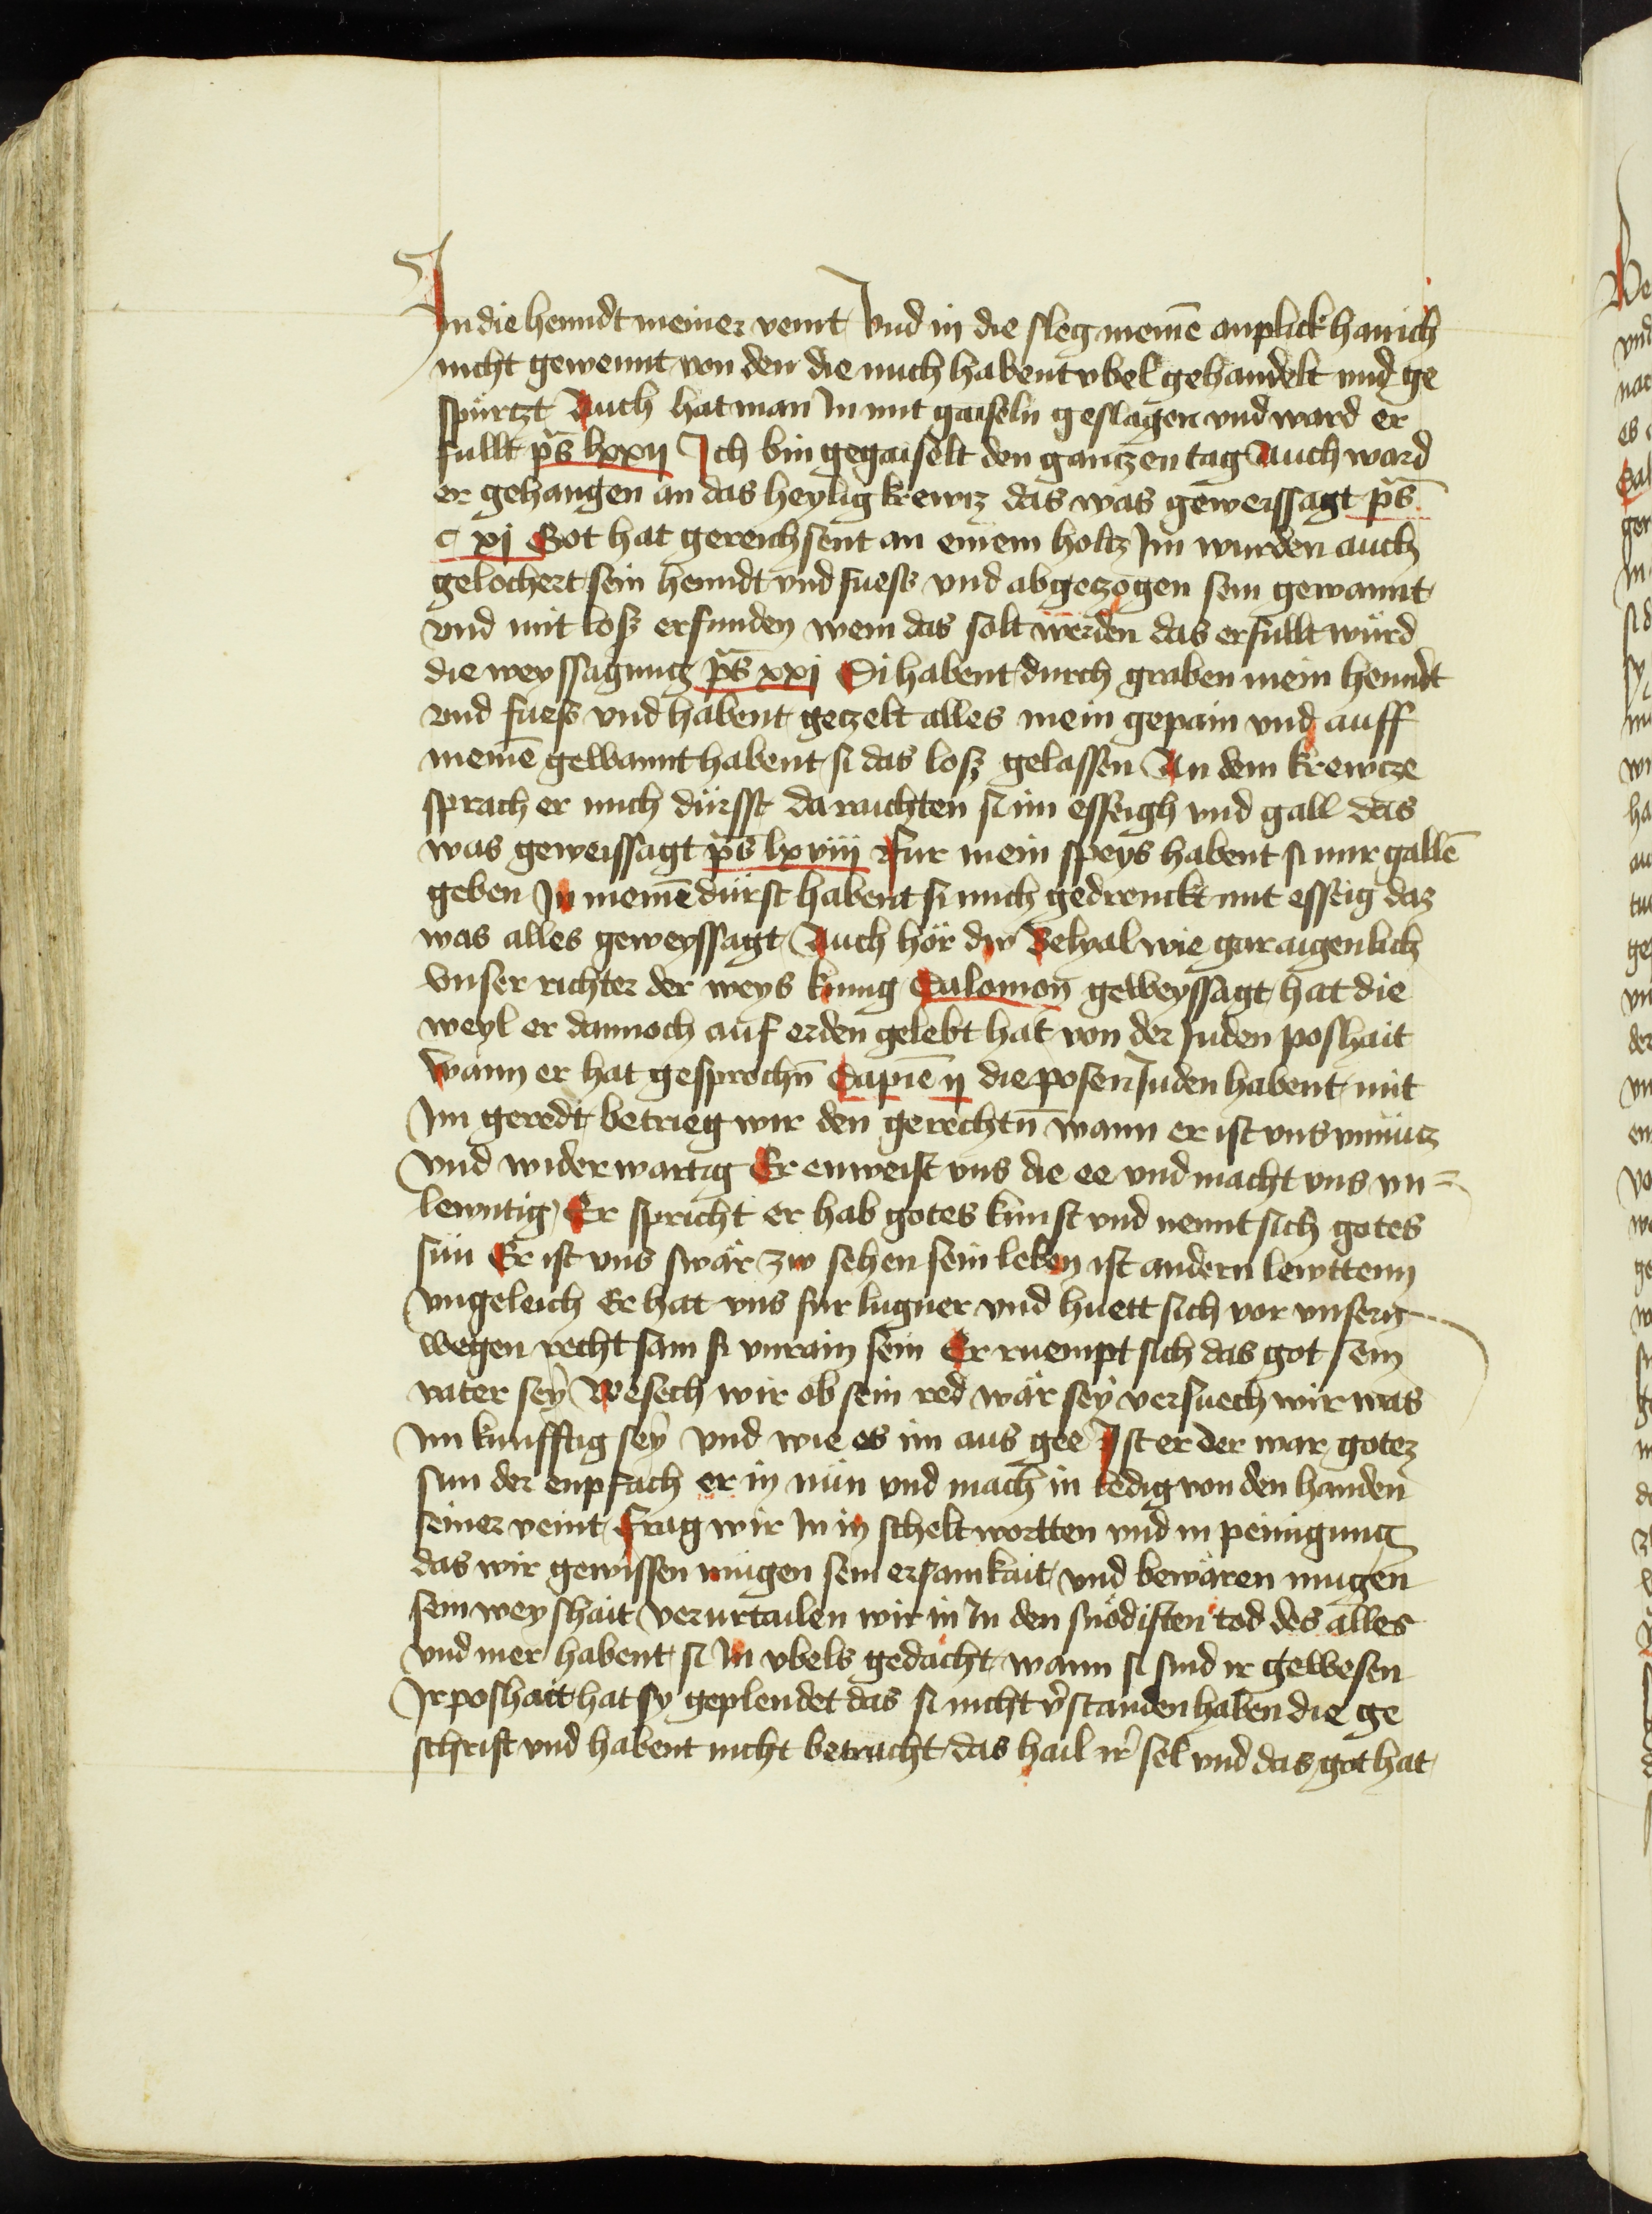 In die henndt meiner veint Vnd in die sleg meinē anplick han ich
nicht gewennt von den die mich habent vbel gehandelt vnd ge
spürtzt Auch hat man In mit gaiseln geslagen vnd ward er
fullt ps̄ lxxij Ich bin gegaiselt den ganczen tag Auch ward
er gehangen an das heylig krewcz das was geweissagt ps̄
c xj Got hat gereichsent an einem holtz Im wurden auch
gelochert sein henndt vnd fuess vnd abgeczogen sein gewannt
vnd mit loss erfunden wem das solt werden das erfullt würd
die weyssagung ps̄ xxj Si habent durch graben mein henndt
vnd fuess vnd habent geczelt alles mein gepain vnd auff
meinē gewannt habent si das losz gelassen An dem krewcze
sprach er mich dürsst da raichten si im esseigh vnd gall das
was geweissagt ps̄ lxviij Fur mein speys habent si mir gallē
geben In meinē dürst habent si mich gedrenckt mit esseig daz
was alles geweyssagt Auch hör dw Belyal wie gar aigenlich
Vnser richter der weys kunig Salomon geweyssagt hat die
weyl er dannoch auf erden gelebt hat von der Juden poshait
Wann er hat gesprochn̄ Sapiē ij die posen Juden habent mit
Im geredt betrieg wir den gerechtn̄ wann er ist vns vnnücz
Vnd widerwartig Er enweist vns die ee vnd macht vns vn=
lewntig Er spricht er hab gotes kunst vnd nennt sich gotes
sün Er ist vns swär zw sehen sein leben ist andern lewttenn
Vngeleich Er hat vns fur lugner vnd huett sich vor vnsern
wegen recht sam si vnrain sein Er ruempt sich das got sein
vater sey Besech wir ob sein red wär sey versuech wir was
Im kunfftig sey vnd wie es im aus gee Ist er der war gotez
sun der enpfach er in nün vnd mach in ledig von den handen
seiner veint Frag wir In in scheltwortten vnd in peinigung
das wir gewissen mügen sein ersamkait vnd bewären mugen
sein weyshait Verurtailen wir in In den snödisten tod des alles
vnd mer habent si In vbels gedacht wann si sind ir gewesen
Ir poshait hat sy geplendet das si nicht v̄standen haben die ge
schrift vnd habent nicht betracht das hail ir̄ sel vnd das got hat